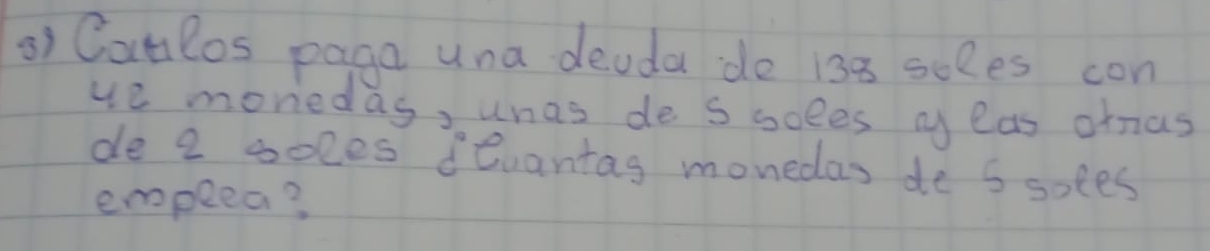 3) Carlos paga una deuda de 138 soles con
42 monedas, unas de 5 soles y las otras
de 2 soles ¿Cuantas monedas de 5 soles
emplea?